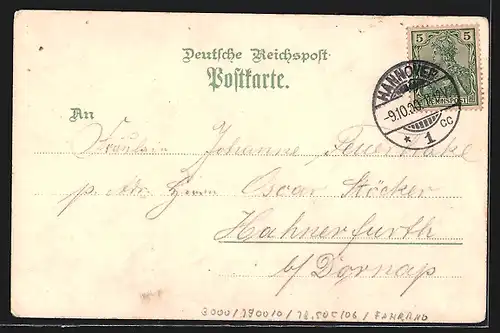 Deutsche Reichspost
Postkarte.
5 5
HANNOVER
-9.10.
* 1 CC
An
Fräulein Johanne
p. Adr. Herrn Oscar Stöcker
Hahnerfurth
b/ Dornap
FAHRRAD